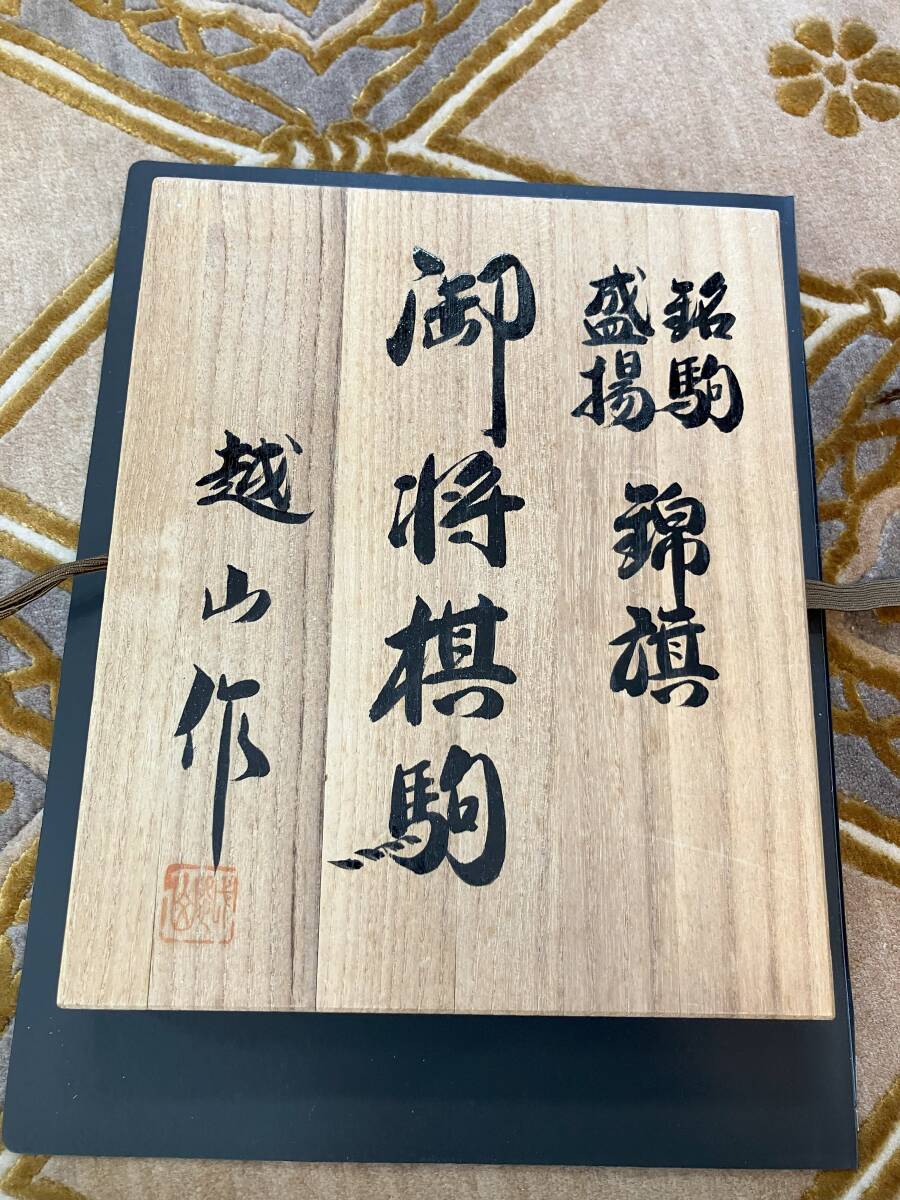 銘駒
盛揚
錦旗
御将棋駒
越山作